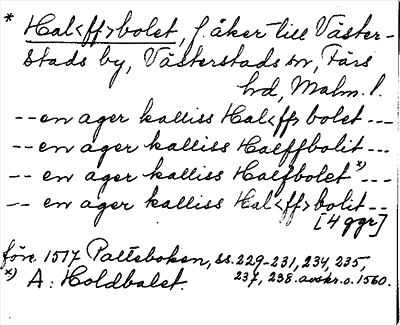 * Hal<ff>bolet, f. åker till Väster-
stads by, Västerstads sn, Färs
hd, Malm. l.
-- en ager kalliss Hal<ff>bolet ---
-- en ager kalliss Halffbolit ---
-- en ager kalliss Halfbolet*) ---
-- en ager kalliss Hal<ff>bolit --
[4 ggr]
före 1517 Palteboken, ss. 229-231, 234, 235,
237, 238. avskr. o. 1560.
*) A: Holdbalet.